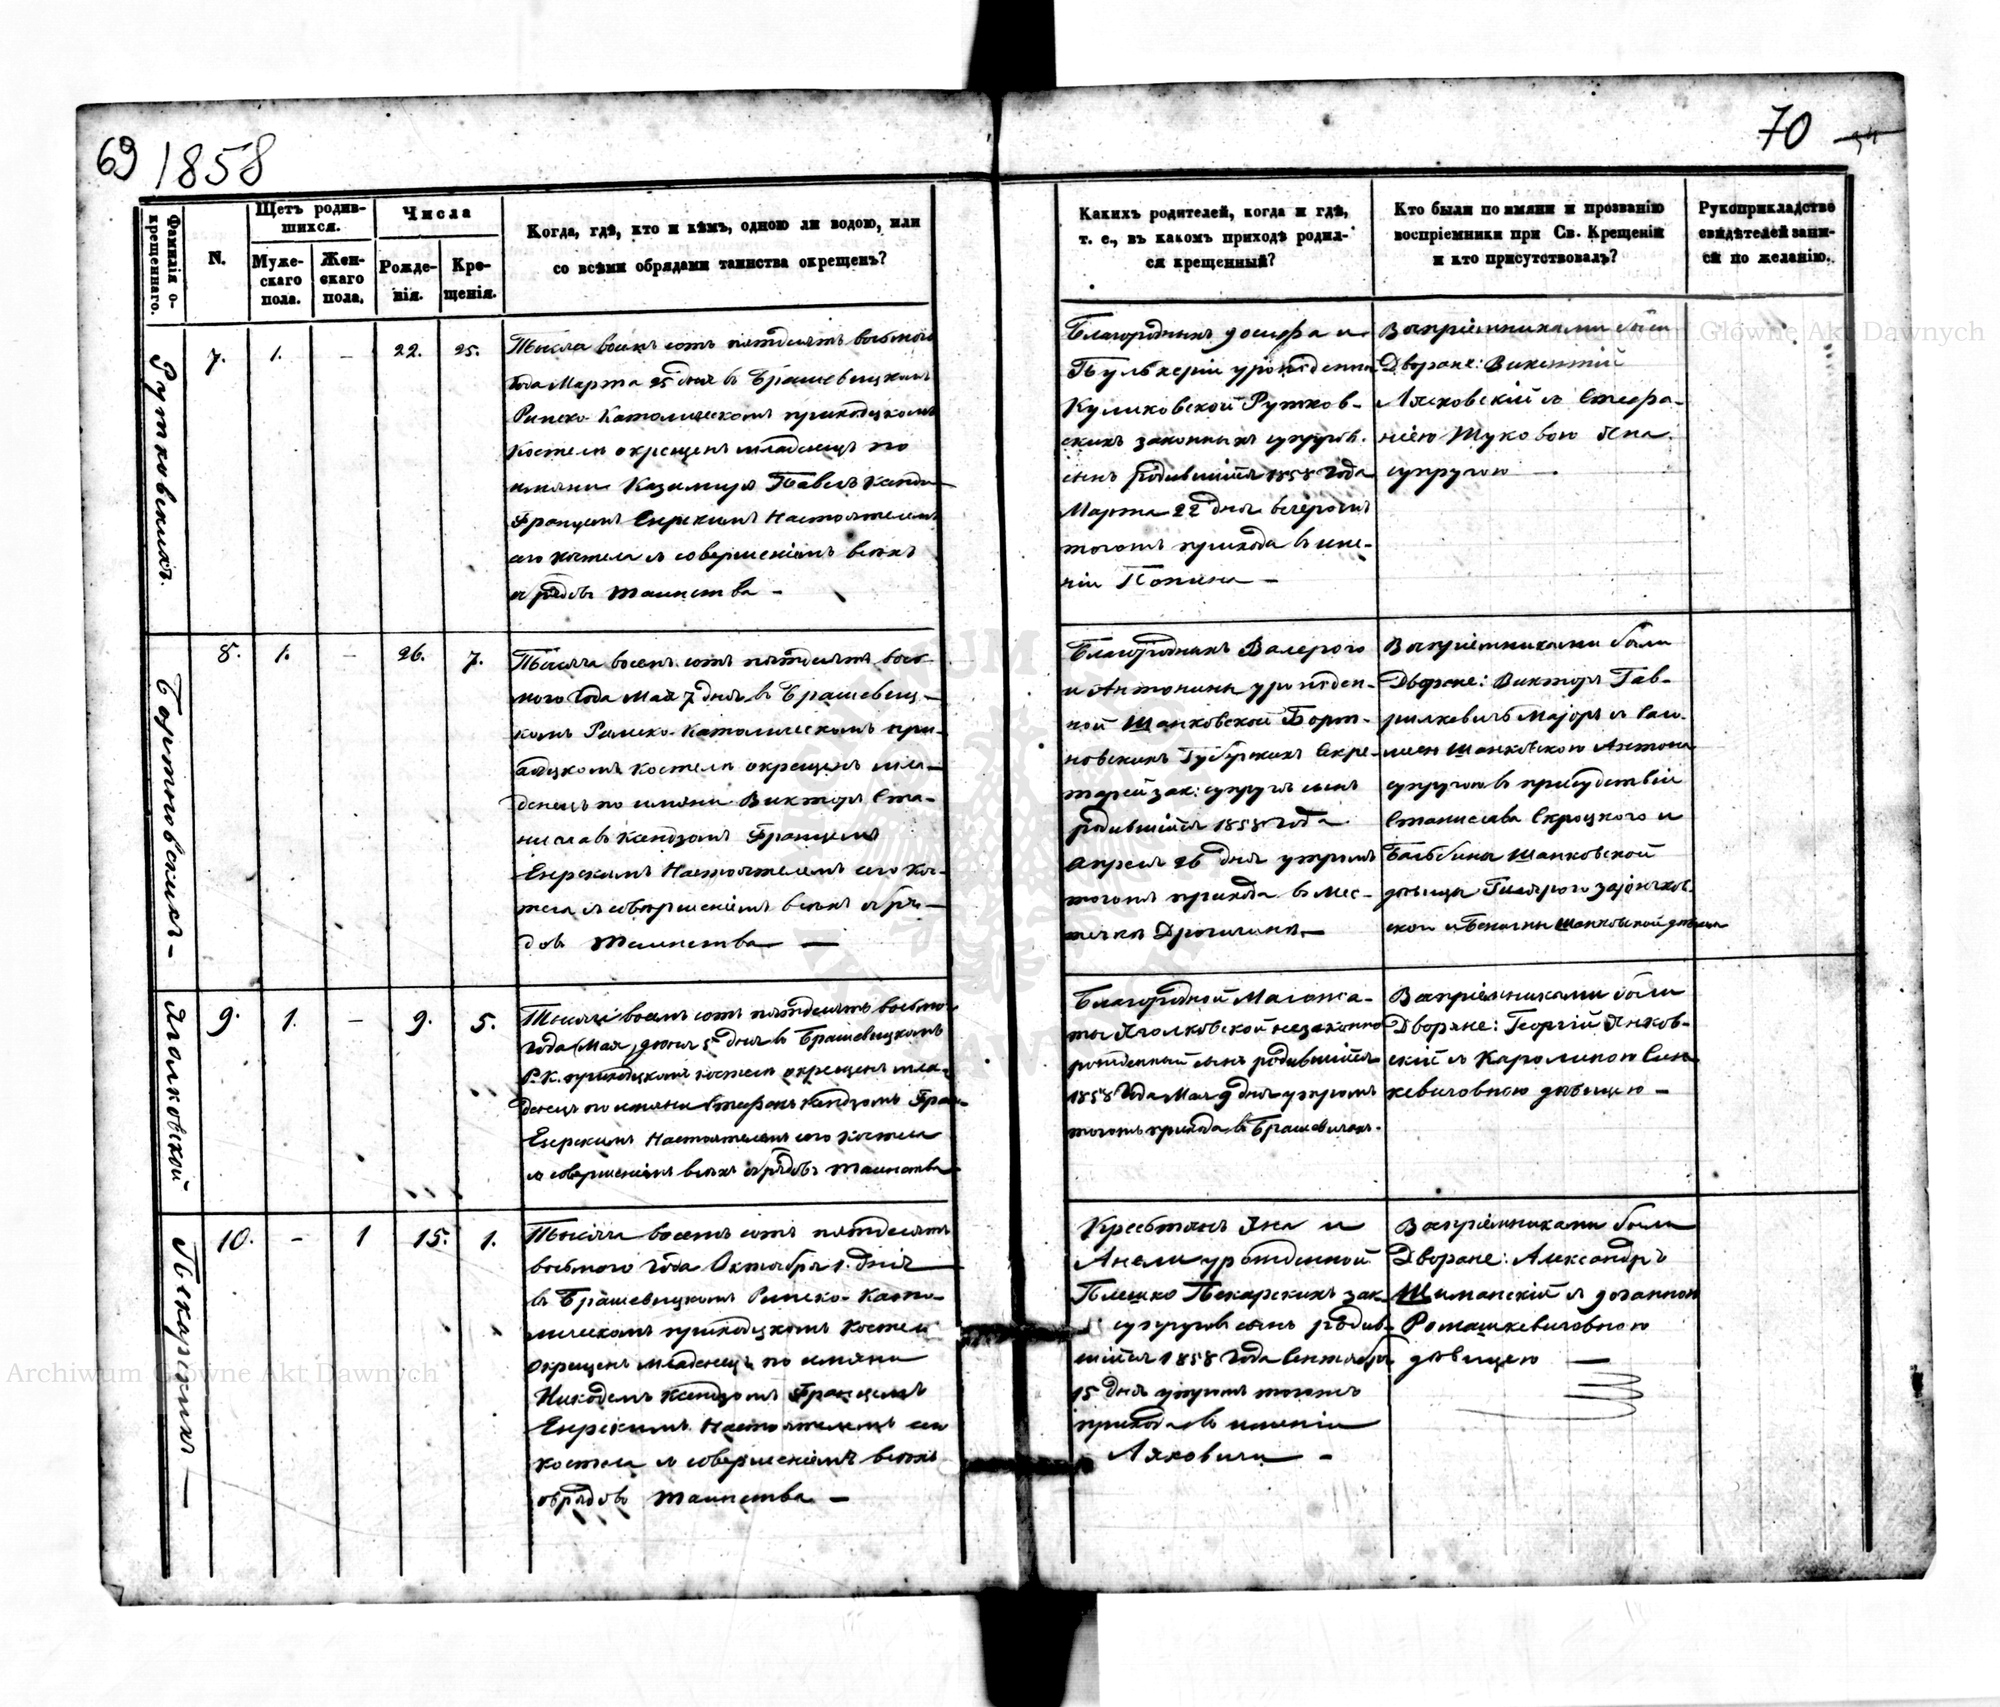 69 1858
70
Фамилія о-
крещеннаго.
N.
Щетъ родив-
шихся.
Муже-
скаго
пола.
Жен-
скаго
пола.
Числа
Рожде-
нія.
Кре-
щенія.
Когда, гдѣ, кто и кѣмъ, одною ли водою, или
со всѣми обрядами таинства окрещенъ?
Какихъ родителей, когда и гдѣ,
т. е., въ какомъ приходѣ родил-
ся крещенный?
Кто были по имяни и прозванію
воспріемники при Св. Крещеніи
и кто присутствовалъ?
Рукоприкладство
свидѣтелей зани-
си по желанію.
Рутковскихъ.
7. 1. – 22. 25.
Тысяча восемь сотъ пятдесятъ восьмого
года Марта 25 дня въ Брашевицкомъ
Римско-Католическомъ приходскомъ
костелѣ окрещенъ младенецъ по
имяни Казимиръ Павелъ
Францемъ Енрскимъ Настоятелемъ
сего костела съ совершеніемъ всѣхъ
обрядовъ таинства –
Благородныхъ Іосифа и
Пульхеріи урожденной
Куликовской Рутков-
скихъ законныхъ супруговъ
сынъ родившійся 1858 года
Марта 22 дня вечеромъ
тогожъ прихода въ име-
ніи Попина –
Воспріемниками были
Дворяне: Викентій
Лясковскій съ Стефа-
ніею Жуковою Яна
супругою –
Бортновскихъ –
8. 1. – 26. 7.
Тысяча восемь сотъ пятдесятъ вось-
мого года Мая 7 дня въ Брашевиц-
комъ Римско-Католическомъ при-
ходскомъ костелѣ окрещенъ мла-
денецъ по имяни Викторъ Ста-
ниславъ Ксендзомъ Францемъ
Енрскимъ Настоятелемъ сего кос-
тела съ совершеніемъ всѣхъ обря-
довъ таинства –
Благородныхъ Валерого
и Антонины урожден-
ной Шанковской Борт-
новскихъ Губерскихъ Секре-
тарей зак: супруговъ сынъ
родившійся 1858 года
Апреля 26 дня утромъ
тогожъ прихода въ мес-
течкѣ Дрогичинѣ –
Воспріемниками были
Дворяне: Викторъ Гав-
рилкевичъ Маіоръ съ Сало-
меею Шанковскою Антона
супругою въ присудствіи
Станислава Скроцкого и
Бальбины Шанковской
дѣвицы
Шанковской дѣвицы
Яголковской
9. 1. – 9. 5.
Тысяча восемь сотъ пятдесятъ восьмого
года (Мая) Іюня 5 дня въ Брашевицкомъ
Р. К. приходскомъ костелѣ окрещенъ мла-
денецъ по имяни Стефанъ Ксендзомъ Фран-
Енрскимъ Настоятелемъ сего костела
съ совершеніемъ всѣхъ обрядовъ таинства
Благородной Малгожа-
ты Яголковской незаконно
рожденный сынъ родившійся
1858 года Мая 9 дня утромъ
тогожъ прихода въ Брашевичахъ.
Воспріемниками были
Дворяне: Георгій Янков-
скій съ Каролиною Син-
кевичовною дѣвицею –
Пекарскихъ –
10. – 1 15. 1.
Тысяча восемь сотъ пятдесятъ
восьмого года Октября 1. дня
въ Брашевицкомъ Римско-Като-
лическомъ приходскомъ костелѣ
окрещенъ младенецъ по имяни
Никодемъ Ксендзомъ Францемъ
Енрскимъ Настоятелемъ сего
костела съ совершеніемъ всѣхъ
обрядовъ таинства –
Крестьянъ Яна и
Анели урожденной
Плешко Пекарскихъ зак
супруговъ сынъ родив-
шійся 1858 года Сентября
15 дня утромъ тогожъ
прихода въ имѣніи
Ляховичи –
Воспріемниками были
Дворяне: Александръ
Шиманскій съ Іоанною
Ромашкевичовною
дѣвицею –
Archiwum Główne Akt Dawnych
Archiwum Główne Akt Dawnych